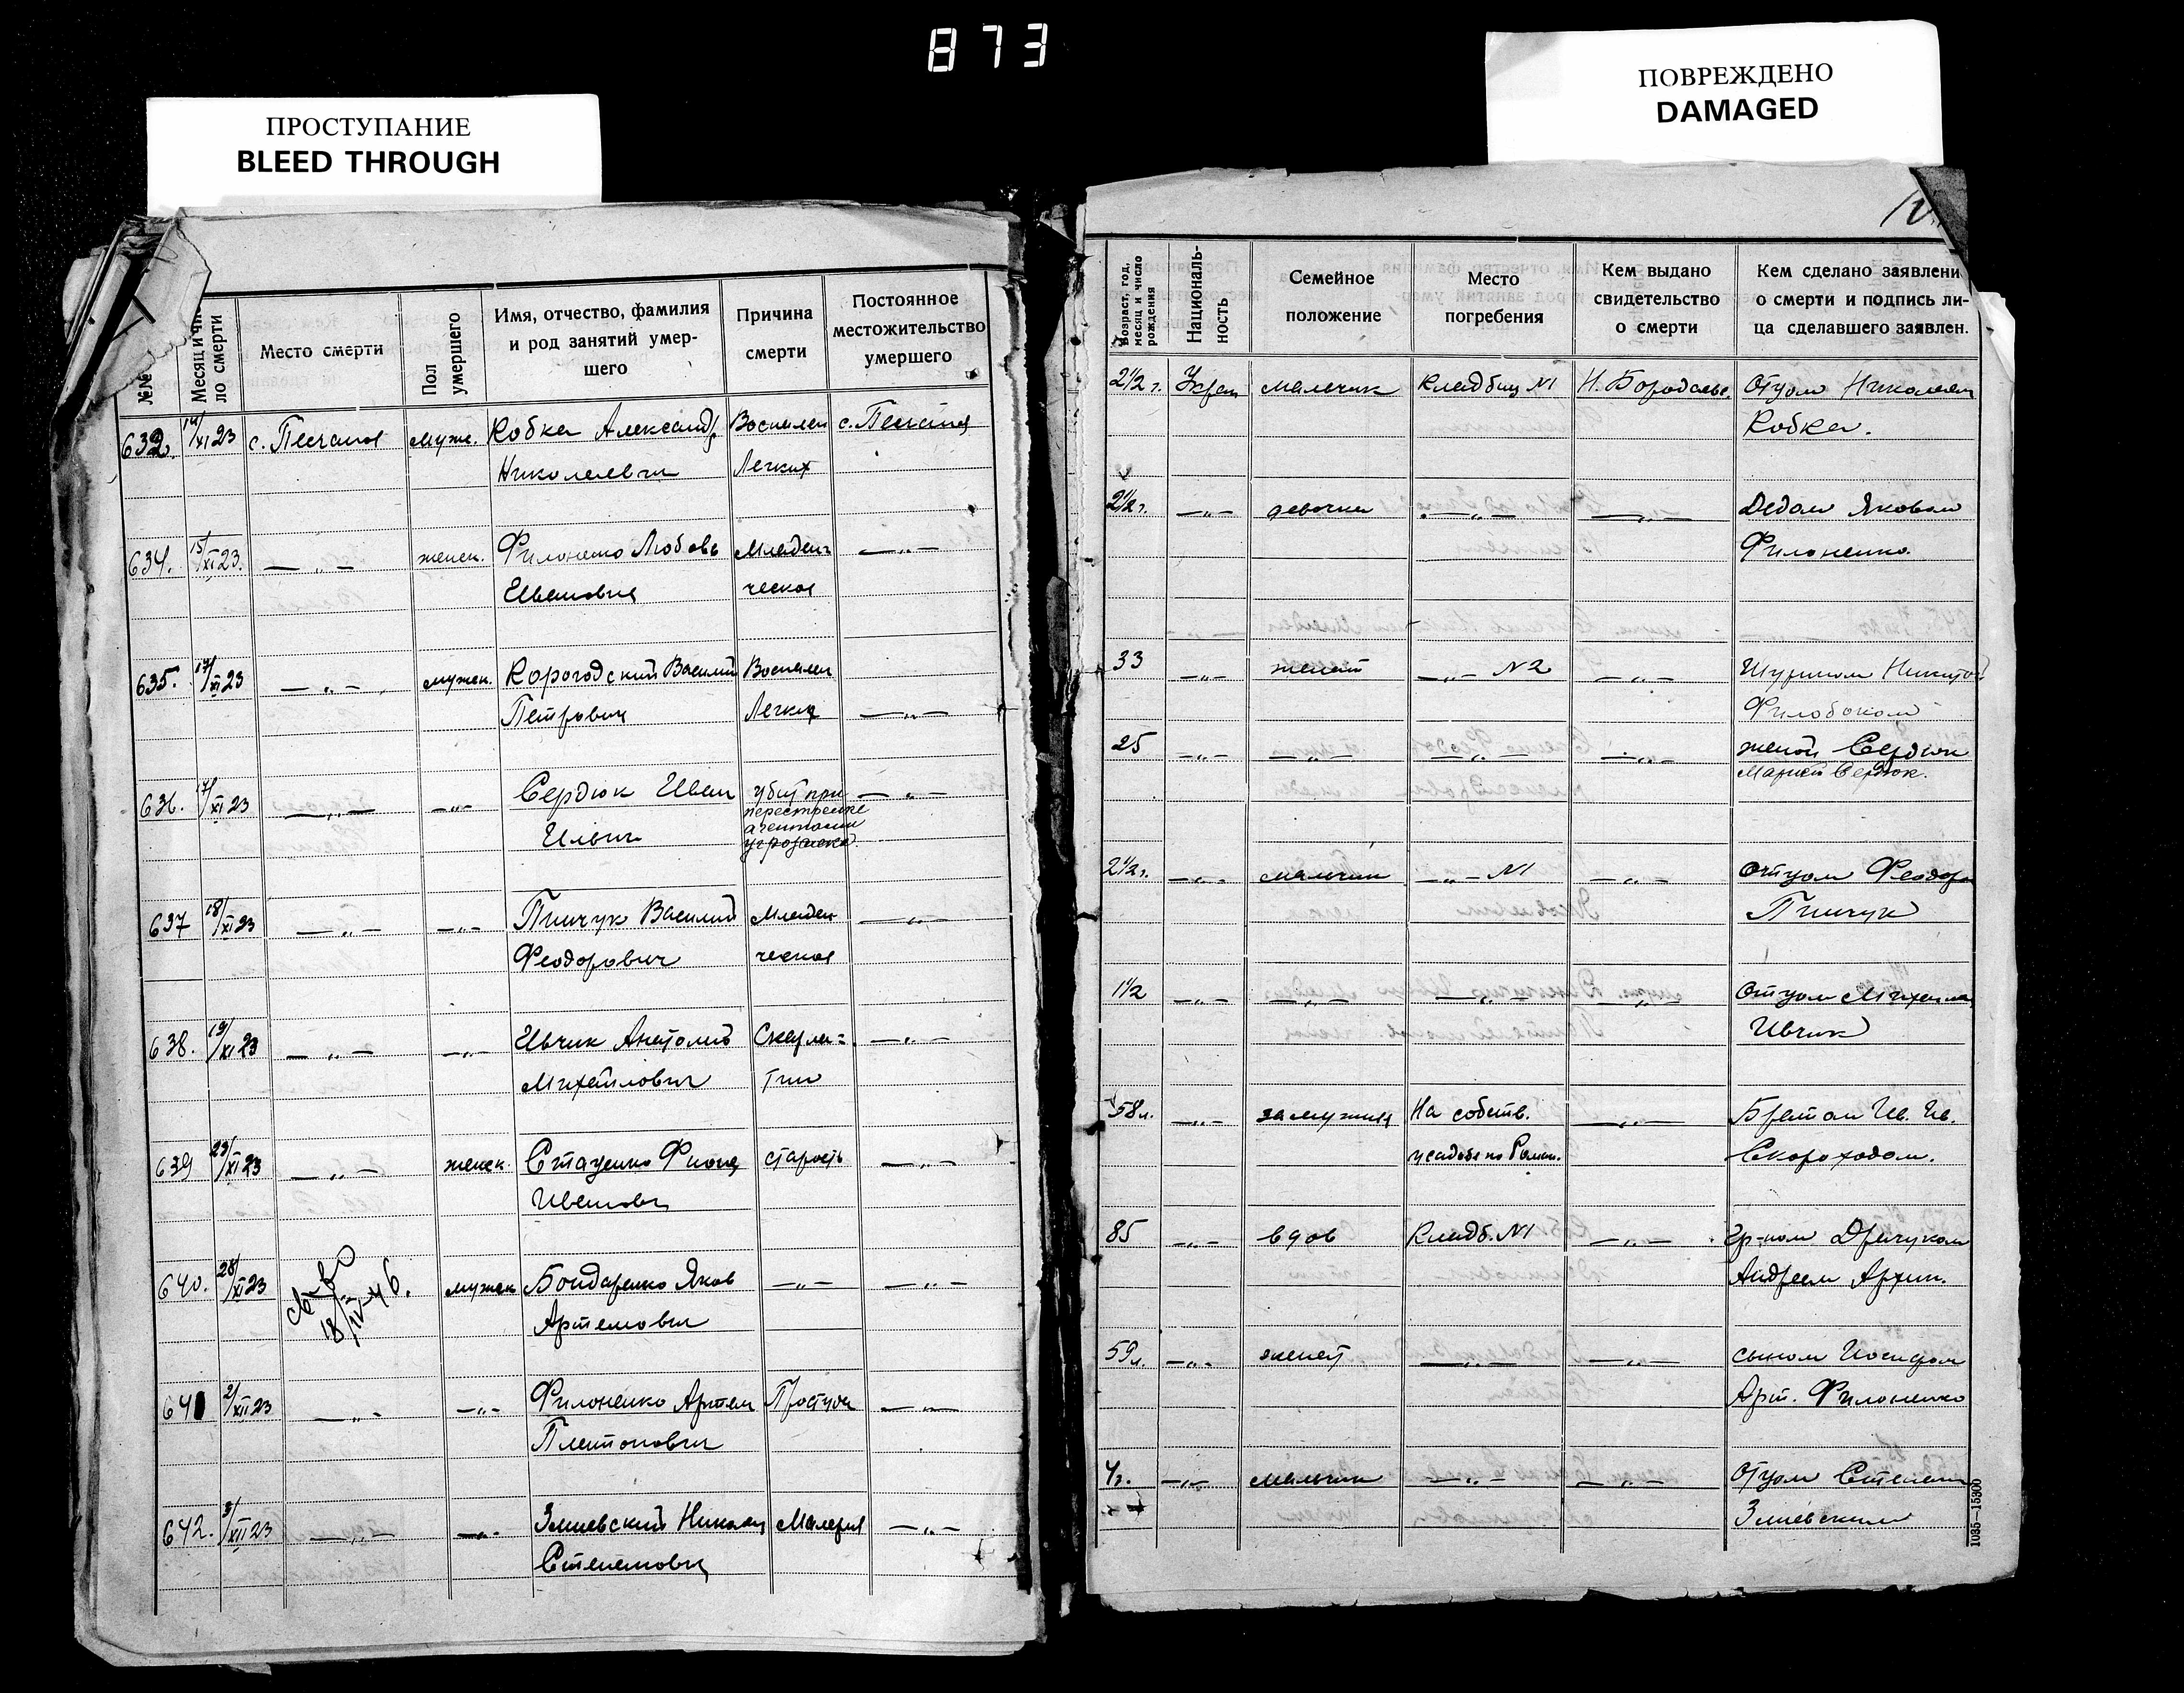 873
ПРОСТУПАНИЕ
BLEED THROUGH
ПОВРЕЖДЕНО
DAMAGED
№№
Место смерти
Пол умершего
Имя, отчество, фамилия
и род занятий умер-
шего
Причина
смерти
Постоянное
местожительство
умершего
633. 14/XI 23 с. Песчаная мужс. Кобка Александр Воспален с. Песчаная
Николаевич Легких
634. 15/XI 23. — „ — женск. Филоненко Любовь Младен- — „ —
Ивановна ческая
635. 17/XI 23 — „ — мужск. Корогодский Василий Воспален
Петрович Легких — „ —
636. 17/XI 23 — „ — — „ — Сердюк Иван убит при — „ —
перестрелке
Ильич агентами
угрозыска
637 18/XI 23 — „ — — „ — Пинчук Василий Младен- — „ —
Феодорович ческая
638. 19/XI 23 — „ — — „ — Ивчик Анатолий Скарла= — „ —
Михайлович тин
639 23/XI 23 — „ — женск. Стаценко старость — „ —
Ивановн
640. 28/XI 23 мужск Бондаренко Яков — „ — — „ —
18/IV-46. Артемович
641 2/XII 23 — „ — — „ — Филоненко Артем Простуда — „ —
Платонович
642. 3/XII 23 — „ — — „ — Змиевский Николай Малерия — „ —
Степанович
Возраст, год,
месяц и число
рождения
Националь-
ность
Семейное
положение
Место
погребения
Кем выдано
свидетельство
о смерти
Кем сделано заявлени
о смерти и подпись ли-
ца сделавшего заявлен.
2 1/2 г. Украи мальчик Кладбищ N1 Н. Бородаевк Отцом Николаем
Кобка.
2 1/2 г. — „ — девочка — „ — — „ — Дедом Яковом
Филоненко.
33 — „ — женат — „ — N2 — „ — Шурином Никитой
Филобоком
25 — „ — — „ — — „ — — „ — женой Сердюк
Марией Сердюк.
2 1/2 г. — „ — мальчик — „ — N1 — „ — Отцом Феодор
Пинчук
1 1/2 — „ — — „ — — „ — — „ — Отцом Михаилом
Ивчик
58 л. — „ — замужняя На собств. — „ — Братом Ив. Ив.
усадьбе по Скороходом.
85 — „ — вдов Кладб. N1 — „ — Гр-ном
Андреем Архип.
59 л. — „ — женат — „ — — „ — сыном Иосифом
Арт. Филоненко
4 г. — „ — мальчик — „ — — „ — Отцом Степаном
Змиевским
1035—15300